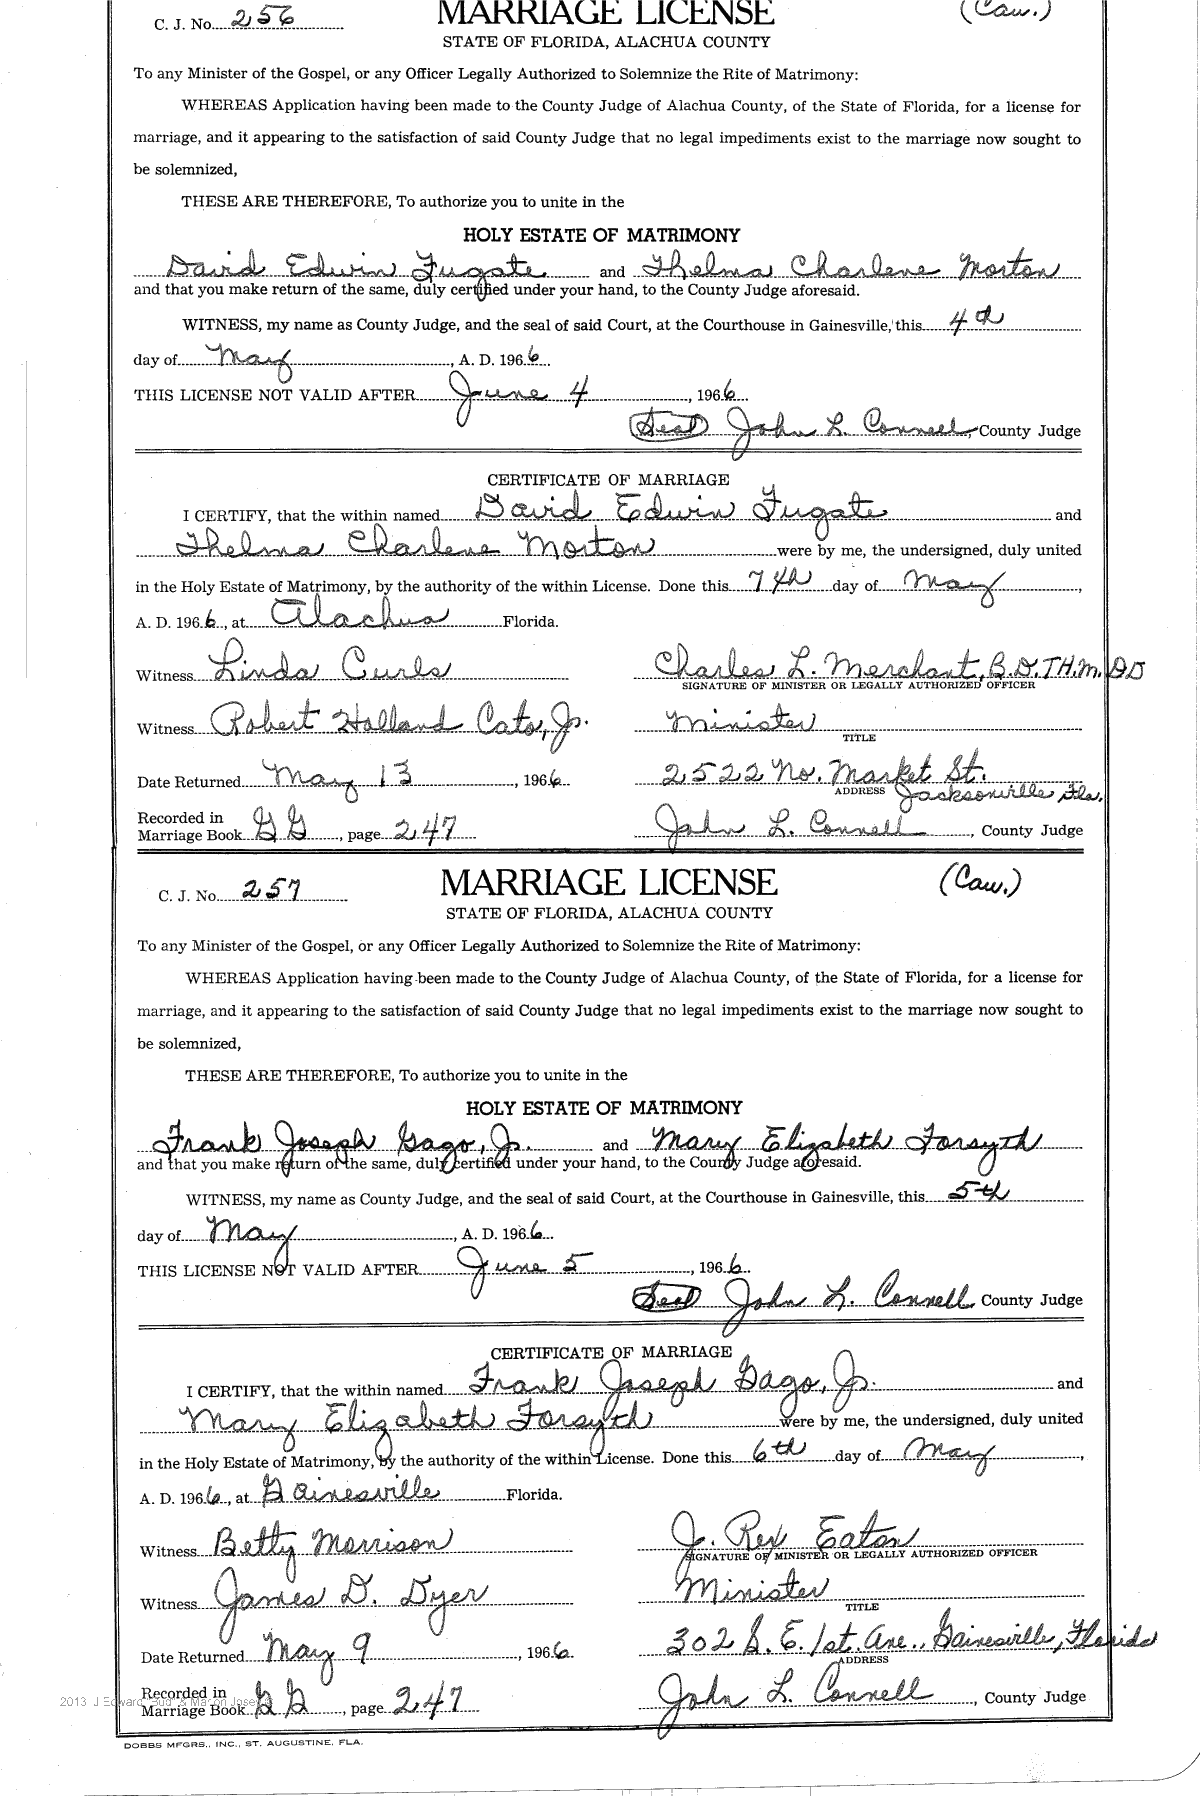 C. J. No. 256 MARRIAGE LICENSE (Caw.)
STATE OF FLORIDA, ALACHUA COUNTY
To any Minister of the Gospel, or any Officer Legally Authorized to Solemnize the Rite of Matrimony:
WHEREAS Application having been made to the County Judge of Alachua County, of the State of Florida, for a license for
marriage, and it appearing to the satisfaction of said County Judge that no legal impediments exist to the marriage now sought to
be solemnized,
THESE ARE THEREFORE, To authorize you to unite in the
HOLY ESTATE OF MATRIMONY
David Edwin Fugate and Thelma Charlene Morton
and that you make return of the same, duly certified under your hand, to the County Judge aforesaid.
WITNESS, my name as County Judge, and the seal of said Court, at the Courthouse in Gainesville, this 4th
day of May, A. D. 1966.
THIS LICENSE NOT VALID AFTER June 4, 1966
(Seal) John L. Connell, County Judge
CERTIFICATE OF MARRIAGE
I CERTIFY, that the within named David Edwin Fugate and
Thelma Charlene Morton were by me, the undersigned, duly united
in the Holy Estate of Matrimony, by the authority of the within License. Done this 7th day of May,
A. D. 1966, at Alachua Florida.
Witness Linda Curls Charles L. Merchant, B.D. TH.M. DD
SIGNATURE OF MINISTER OR LEGALLY AUTHORIZED OFFICER
Witness Robert Holland Cato, Jr. Minister
TITLE
Date Returned May 13, 1966 2522 No. Market St.
ADDRESS Jacksonville Fla.
Recorded in
Marriage Book GG, page 247 John L. Connell, County Judge
C. J. No. 257 MARRIAGE LICENSE (Caw.)
STATE OF FLORIDA, ALACHUA COUNTY
To any Minister of the Gospel, or any Officer Legally Authorized to Solemnize the Rite of Matrimony:
WHEREAS Application having been made to the County Judge of Alachua County, of the State of Florida, for a license for
marriage, and it appearing to the satisfaction of said County Judge that no legal impediments exist to the marriage now sought to
be solemnized,
THESE ARE THEREFORE, To authorize you to unite in the
HOLY ESTATE OF MATRIMONY
Frank Joseph Gago, Jr. and Mary Elizabeth Forsyth
and that you make return of the same, duly certified under your hand, to the County Judge aforesaid.
WITNESS, my name as County Judge, and the seal of said Court, at the Courthouse in Gainesville, this 5th
day of May, A. D. 1966.
THIS LICENSE NOT VALID AFTER June 5, 1966.
(Seal) John L. Connell County Judge
CERTIFICATE OF MARRIAGE
I CERTIFY, that the within named Frank Joseph Gago, Jr. and
Mary Elizabeth Forsyth were by me, the undersigned, duly united
in the Holy Estate of Matrimony, by the authority of the within License. Done this 6th day of May,
A. D. 1966, at Gainesville Florida.
Witness Betty Morrison J. Rex Eaton
SIGNATURE OF MINISTER OR LEGALLY AUTHORIZED OFFICER
Witness James D. Dyer Minister
TITLE
Date Returned May 9, 1966. 302 S. E. 1st. Ave., Gainesville, Florida
ADDRESS
Recorded in
Marriage Book GG, page 247 John L. Connell, County Judge
2013 J Edward "Bud" & Marion
DOBBS MFGRS., INC., ST. AUGUSTINE, FLA.